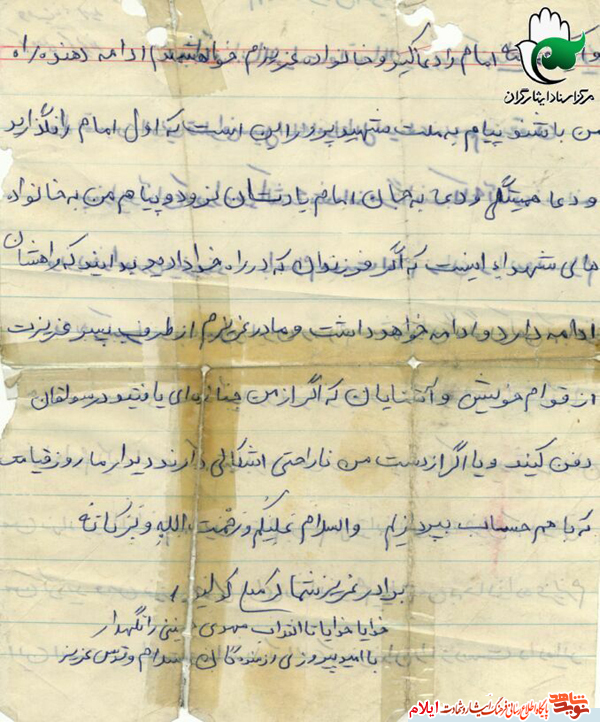 امام را دعا کنید و خانواده عزیزم خواهشمندم ادامه دهنده راه
مرکز اسناد ایثارگران
من باشند و پیام به ملت شهید پرور این است که اول امام را نگذارید
و دعا همیشگی و دعا به جان امام یادتان نرود و پیام من به خانواده
های شهداء اینست که اگر فرزندان که در راه خدا داده اید بدانید که راهشان
ادامه دارد و ادامه خواهد داشت و مادر عزیزم از طرف پسر عزیزت
از قوام خویش و آشنایان که اگر از من جنازه ای یافتید در سولقان
دفن کنید و یا اگر از دست من ناراحتی اشکالی دارند دیدار ما روز قیامت
که با هم حساب بپردازیم والسلام علیکم و رحمت الله و برکاته
برادر عزیز شما
خدایا خدایا تا انقلاب مهدی خمینی را نگهدار
با امید پیروزی رزمندگان اسلام و قدس عزیز
نوید شاهد
پایگاه اطلاع رسانی فرهنگ ایثار و شهادت ایلام